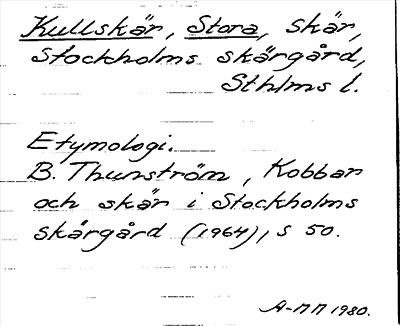 Kullskär, Stora, skär,
Stockholms skärgård,
Sthlms l.
Etymologi.
B. Thunström, Kobbar
och skär i Stockholms
skärgård (1964), s 50.
A-MM 1980.